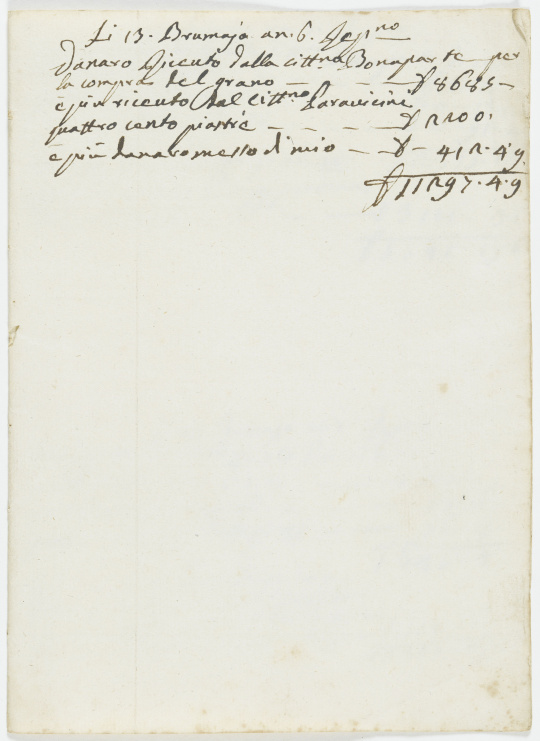 Li 13. Brumajo an. 6.
Danaro Riceuto dalla citt.na Bonaparte per
la compra del grano — — — £ 8685 —
e più riceuto dal Citt.no Paravicini
quattro cento piastre — — — £ 2200.
e più danaro messo di mio — £ — 412.4.9
£ 11297.4.9